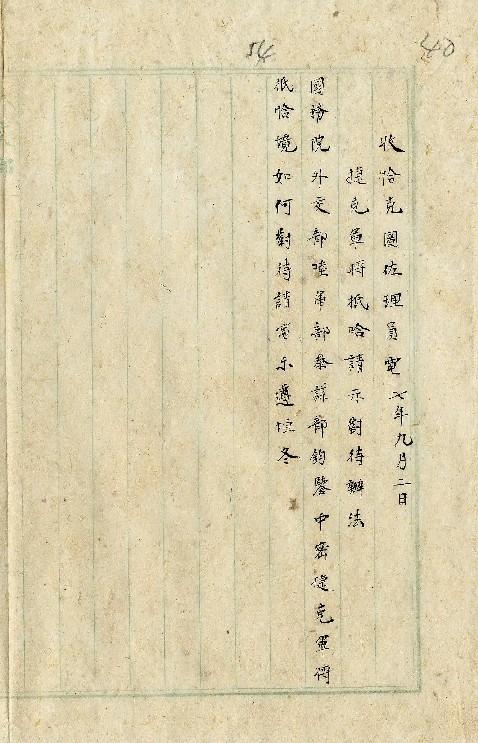 54
40
收恰克圖佐理員電 七年九月二日
捷克軍將抵哈請示對待辦法
國務院外交部陸軍部參謀部鈞鑒中密捷克軍將
抵恰境如何對待請電示遵 冬